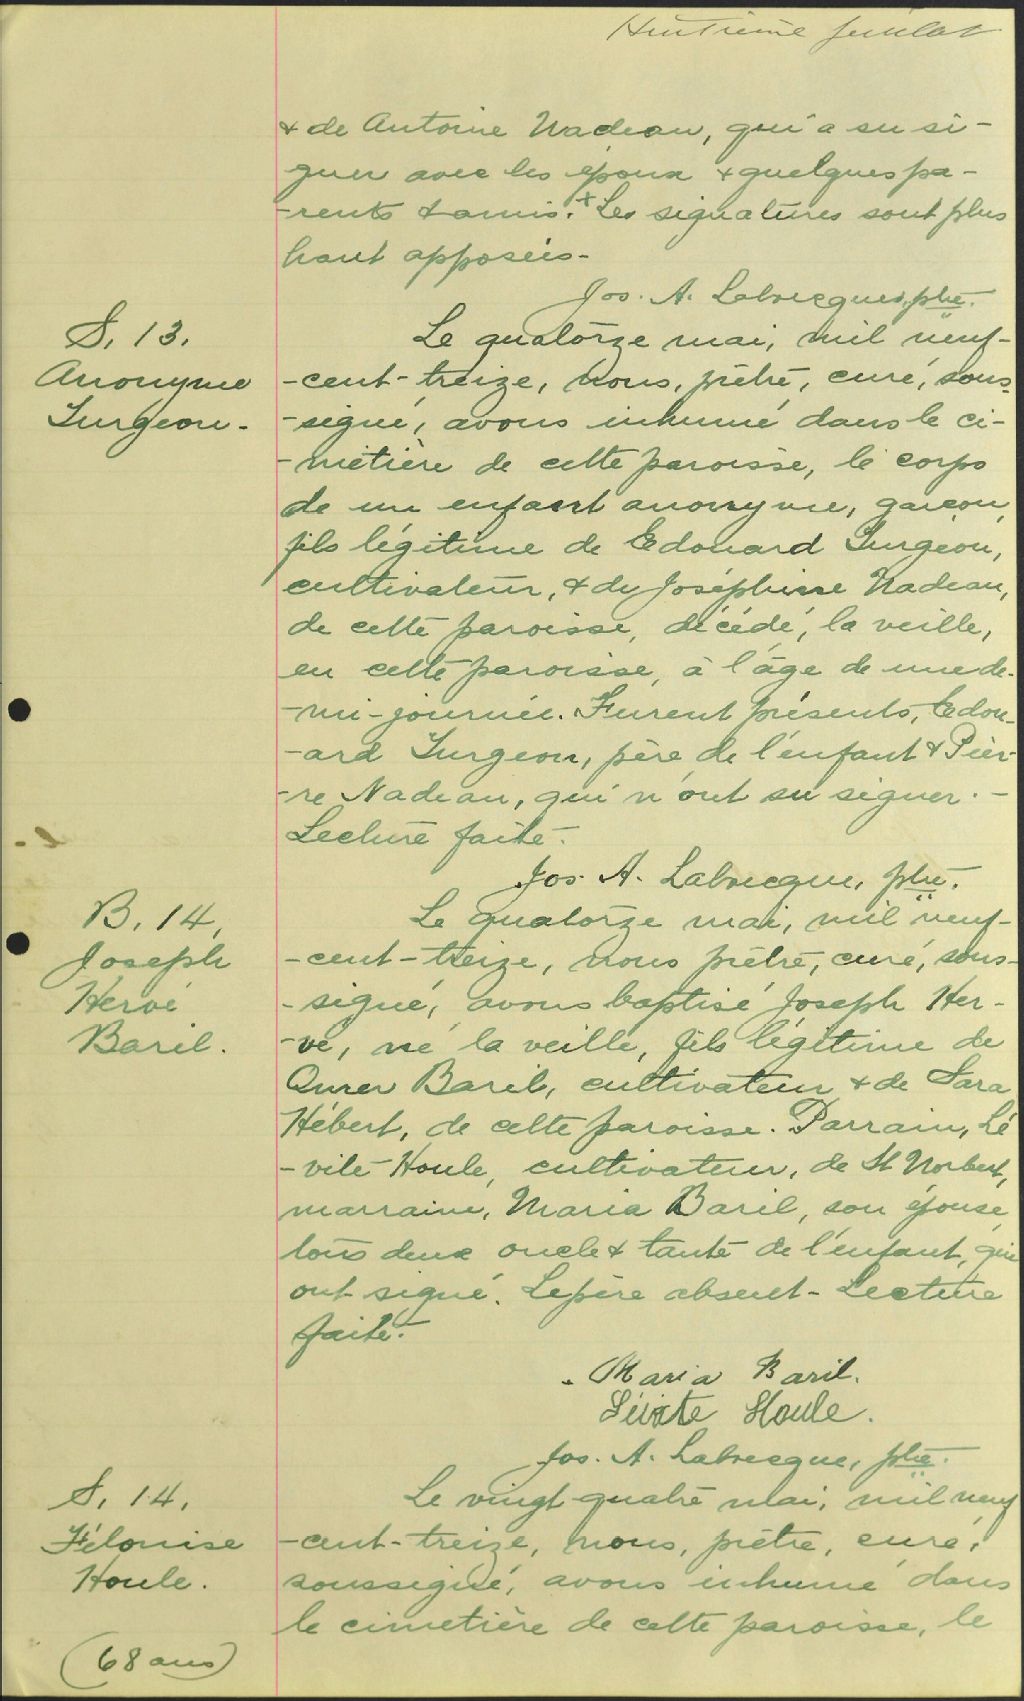 Huitième feuillet
& de Antoine Nadeau, qui a su si-
gner avec les époux & quelques pa-
-rents & amis. + Les signatures sont plus
haut apposées-
Jos. A. Labrecque, ptre.
S. 13.
Anonyme
Turgeon-
Le quatorze mai, mil neuf-
-cent-treize, nous, prêtre, curé, sous-
-signé, avons inhumé dans le ci-
-metière de cette paroisse, le corps
de un enfant anonyme, garçon,
fils légitime de Edouard Turgeon,
cultivateur, & de Joséphine Nadeau,
de cette paroisse, décédé, la veille,
en cette paroisse, à l'âge de une de-
-mi-journée. Furent présents, Edou-
-ard Turgeon, père de l'enfant & Pier-
-re Nadeau, qui n'ont su signer.-
Lecture faite-
Jos. A. Labrecque, ptre.
B. 14,
Joseph
Hervé
Baril.
Le quatorze mai, mil neuf-
-cent-treize, nous prêtre, curé, sous-
-signé, avons baptisé Joseph Her-
-vé, né la veille, fils légitime de
Omer Baril, cultivateur & de Sara
Hébert, de cette paroisse. Parrain, Lé
-vite Houle, cultivateur, de St Norbert,
marraine, Maria Baril, son épouse,
tous deux oncle & tante de l'enfant, qui
ont signé. Le père absent- Lecture
faite-
Maria Baril.
Lévite Houle.
Jos. A. Labrecque, ptre.
S. 14,
Félonise
Houle.
(68 ans)
Le vingt-quatre mai, mil neuf
-cent-treize, nous, prêtre, curé,
soussigné, avons inhumé dans
le cimetière de cette paroisse, le